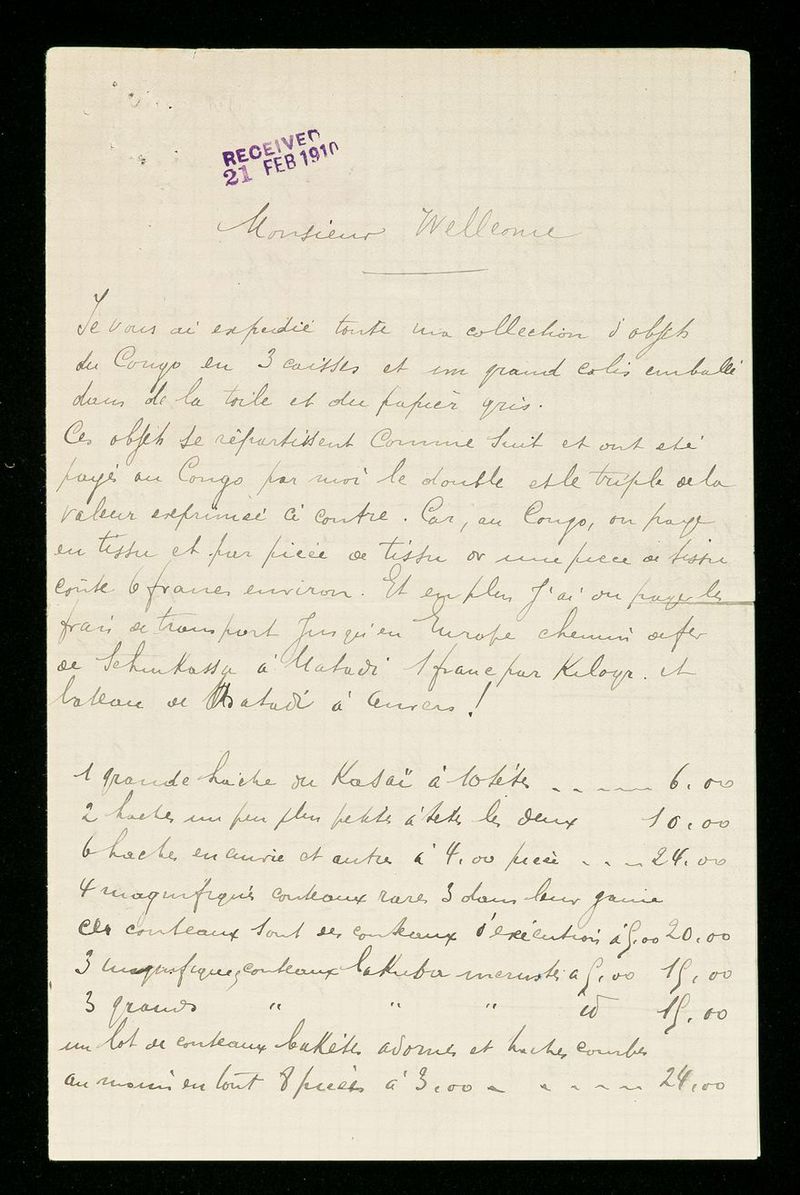 RECEIVED
21 FEB 1910
Monsieur Wellcome
Je vous ai expedié toute ma collection d'objets
du Congo en 3 caisses et un grand colis emballé
dans de la toile et du papier gris.
Ces objets se répartissent comme suit et ont été
payés au Congo par moi le double et le triple de la
valeur exprimée ci contre. Car, au Congo, on paye
en tissu et par pièce de tissu or une pièce de tissu
coûte 6 francs environ. Et en plus j'ai du payer les
frais de transport jusqu'en Europe chemin de fer
de à Matadi 1 franc par Kilogr. et
bateau de Matadi à Anvers!
1 grande hache du Kasaï à 10 têtes 6.00
2 haches un peu plus petites à têtes les deux 10.00
6 haches en cuivre et autres à 4.00 pièce 24.00
4 magnifiques couteaux rares 3 dans leur gaine
ces couteaux sont des couteaux d'exécution à 5.00 20.00
3 magnifiques couteaux bakuba incrustés à 5,00 15,00
3 grands " " " id 15.00
un lot de couteaux bakétés adornés et haches courbes
au moins en tout 8 pièces à 3.00 24,00